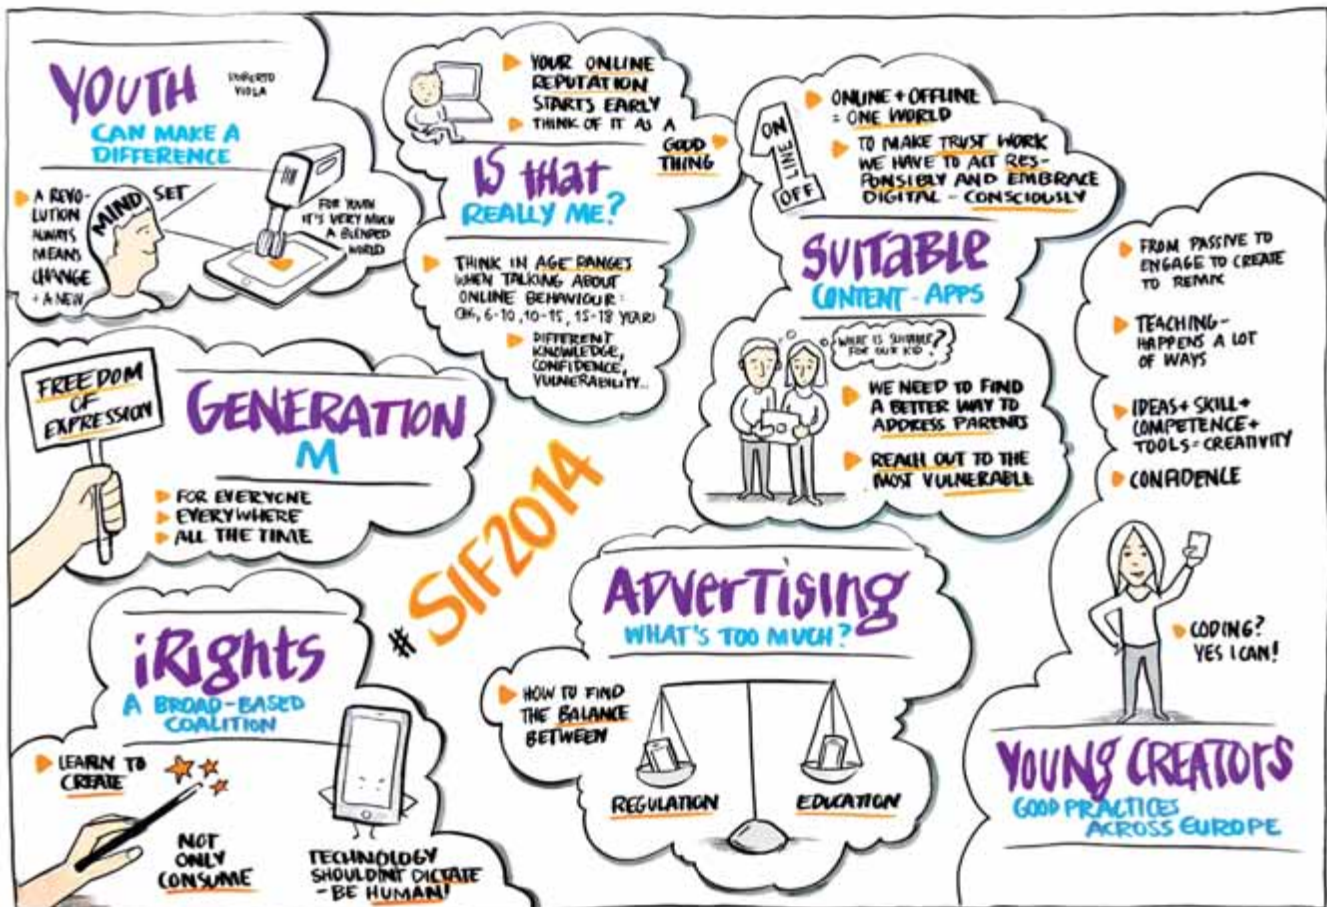 YOUTH
ROBERTO
VIOLA
CAN MAKE A
DIFFERENCE
A REVO-
LUTION
ALWAYS
MEANS
CHANGE
+ A NEW
MIND SET
FOR YOUTH
IT'S VERY MUCH
A BLENDED
WORLD
YOUR ONLINE
REPUTATION
STARTS EARLY
THINK OF IT AS A
GOOD
THING
IS THAT
REALLY ME?
THINK IN AGE RANGES
WHEN TALKING ABOUT
ONLINE BEHAVIOUR:
6-10, 10-15, 15-18 YEAR)
DIFFERENT
KNOWLEDGE,
CONFIDENCE,
VULNERABILITY...
ON
LINE
OFF
ONLINE + OFFLINE
= ONE WORLD
TO MAKE TRUST WORK
WE HAVE TO ACT RES-
PONSIBLY AND EMBRACE
DIGITAL - CONSCIOUSLY
SUITABLE
CONTENT - APPS
WHAT IS SUITABLE
FOR OUR KID?
WE NEED TO FIND
A BETTER WAY TO
ADDRESS PARENTS
REACH OUT TO THE
MOST VULNERABLE
FROM PASSIVE TO
ENGAGE TO CREATE
TO REMIX
TEACHING -
HAPPENS A LOT
OF WAYS
IDEAS + SKILL +
COMPETENCE +
TOOLS = CREATIVITY
CONFIDENCE
CODING?
YES I CAN!
YOUNG CREATORS
GOOD PRACTICES
ACROSS EUROPE
FREEDOM
OF
EXPRESSION
GENERATION
M
FOR EVERYONE
EVERYWHERE
ALL THE TIME
#SIF2014
iRights
A BROAD-BASED
COALITION
LEARN TO
CREATE
NOT
ONLY
CONSUME
TECHNOLOGY
SHOULDN'T DICTATE
- BE HUMAN!
ADVERTISING
WHAT'S TOO MUCH?
HOW TO FIND
THE BALANCE
BETWEEN
REGULATION
EDUCATION